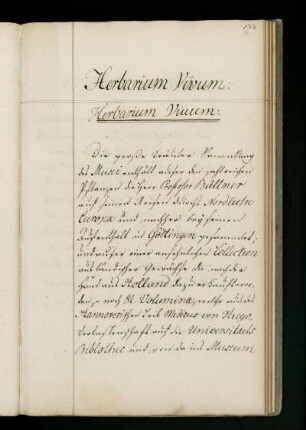 Herbarium Vivum:
Herbarium Vivum:
Die große Kräuter Sammlung
des Musei enthält außer den zahlreichen
Pflanzen die Herr Professor Büttner
auf seinen Reisen durch's Nördliche
Europa und nachher bey seinem
Aufenthalt in Göttingen gesammelt;
und außer einer ansehnlichen Collection
ausländischer Gewächse die nach der
Hand aus Holland dazu erkauft
worden, noch 81 Volumina, welche aus des
Hannoverischen Leib Medicus von Hugo,
Verlassenschaft auf die Universitaets
Bibliothec und von da ins Museum